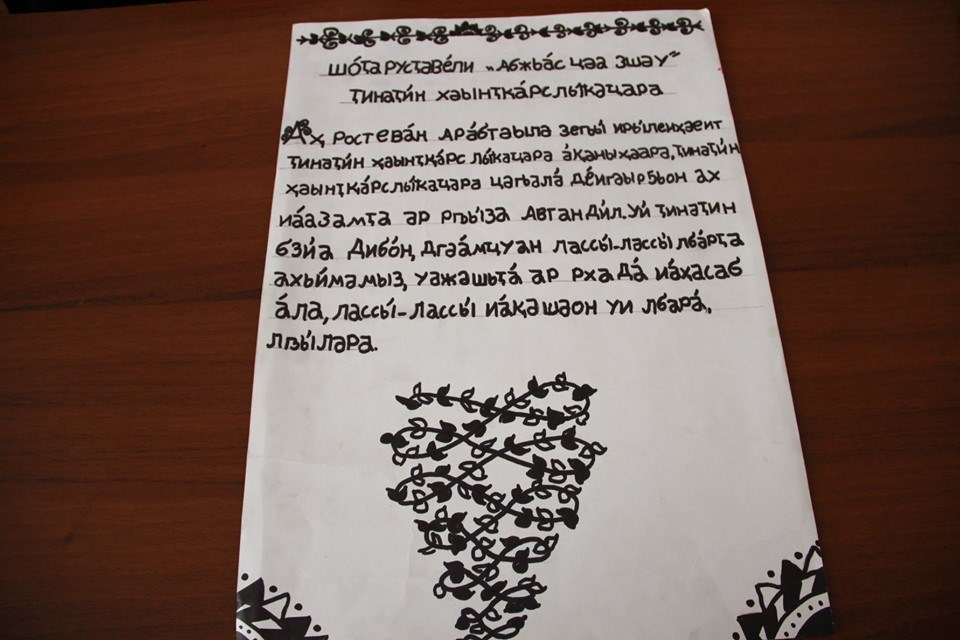 Шо́ҭа Русҭаве́ли „Абжьа́с цәа зшәу“
Ҭинаҭи́н ҳәынҭқа́рс лы́қәҵара
Аҳ Ростева́н Ара́бтәыла зегьы́ иры́леиҳәеит
Ҭинаҭи́н ҳәынҭқа́рс лы́қәҵара а́қәныҳәара, Ҭинаҭи́н
ҳәынҭқа́рс лы́қәҵара цәгьала́ де́игәырӷьон ах
иа́азамҭа ар рҧы́за Автандил. Уи́ Ҭинаҭин
бзи́а дибо́н, дгәа́мҵуан лассы́-лассы́ лбарҭа
ахьи́мамыз, уажәшьҭа́ ар рхада́ иа́ҳасаб
а́ла, лассы́-лассы́ иа́қәшәон уи лбара́,
лҧы́лара.